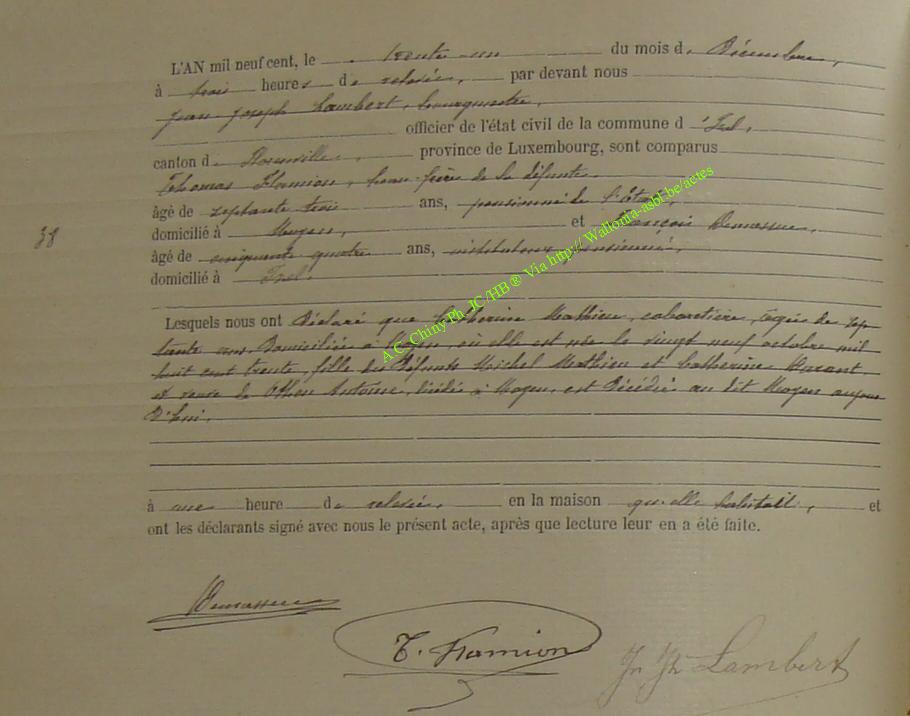 L'AN mil neuf cent, le trente-un du mois d. Décembre,
à trois heures de relevée, par devant nous
Jean Joseph Lambert, bourgmestre,
officier de l'état civil de la commune d'Izel,
canton d. Florenville, province de Luxembourg, sont comparus
Thomas Hamion, beau-frère de la défunte
âgé de septante trois ans, pensionné de l'Etat,
domicilié à Moyen, et François Demasse
38
âgé de cinquante quatre ans, instituteur pensionné,
domicilié à Izel.
Lesquels nous ont Déclaré que Catherine Mathieu, cabaretière, âgée de sep-
tante ans, Domiciliée à Moyen, où elle est née le vingt neuf octobre mil
huit cent trente, fille des Défunts Michel Mathieu et Catherine
et veuve de Othon Antoine, décédé à Moyen, est Décédée au dit Moyen aujour
D'hui,
à une heure de relevée, en la maison qu'elle habitait, et
ont les déclarants signé avec nous le présent acte, après que lecture leur en a été faite.
T. Hamion
Jn Jh Lambert
A.C. Chiny Ph. JC/HB ® Via http:// Wallonia-asbl.be/actes